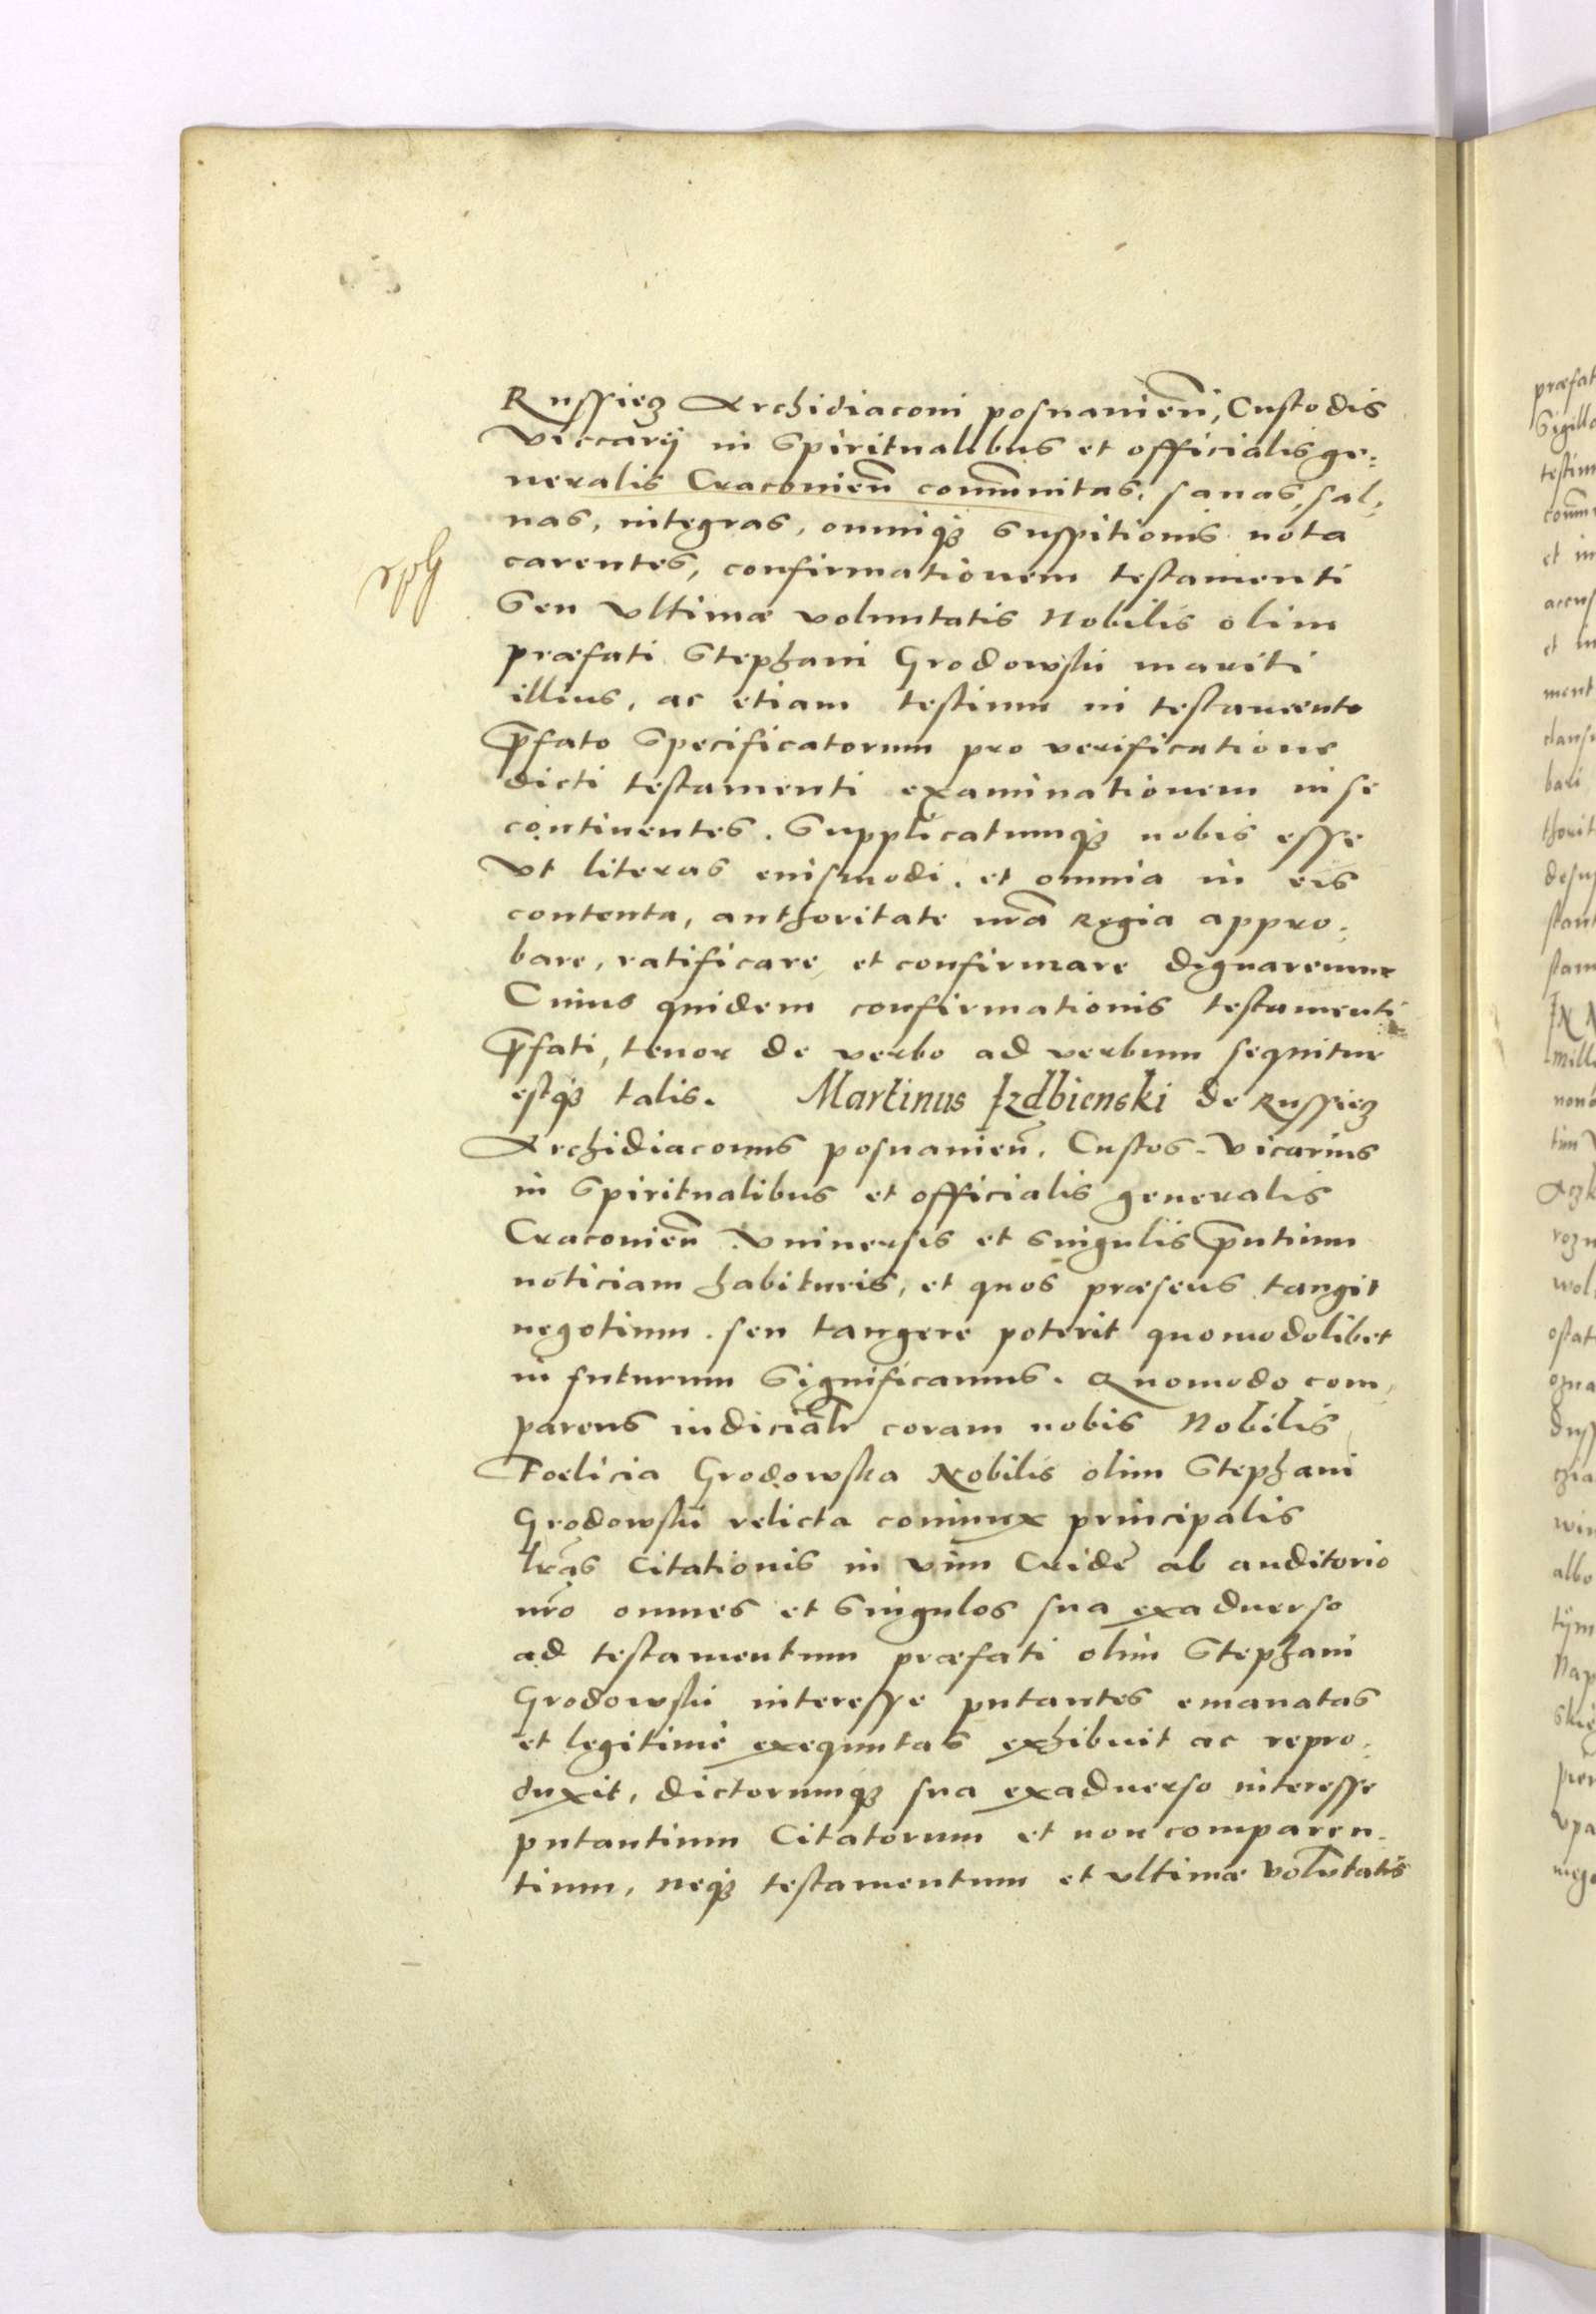 Russiecz Archidiaconi posnanien̄, Custodis
Viccarij in Spiritualibus et officialis ge=
neralis Cracovien̄ communitas, sanas, sal=
uas, integras, omniq3 suspitionis nota
carentes, confirmationem testamenti
Seu vltimæ voluntatis Nobilis olim
præfati Stephani Grodowskii mariti
illius, ac etiam testium in testamento
p̄fato specificatorum pro verificatione
dicti testamenti examinationem in se
continentes. Supplicatumq3 nobis esse
Vt literas euismodi, et omnia in eis
contenta, authoritate nr̄a Regia appro=
bare, ratificare et confirmare dignaremur
Cuius quidem confirmationis testamenti
p̄fati, tenor de verbo ad verbum sequitur
estq3 talis. Martinus Izdbienski de Russiecz
Archidiaconus posnanien̄. Custos. Vicarius
in Spiritualibus et officialis generalis
Cracovien̄. Vniuersis et singulis p̄ntium
noticiam habituris, et quos præsens tangit
negotium. seu tangere poterit quomodolibet
in futurum Significamus. Quomodo com=
parens iudicialr̄ coram nobis Nobilis
Foelicia Grodowska Nobilis olim Stephani
Grodowskii relicta coniunx principalis
lr̄as Citationis in vim Cridē ab auditorio
nr̄o omnes et singulos sua exaduerso
ad testamentum præfati olim Stephani
Grodowskii interesse putantes emanatas
et legitime exequutas exhibuit ac repro=
duxit, dictorumq3 sua exaduerso interesse
putantium Citatorum et non comparen=
tium, neq3 testamentum et vltimæ volūtatis
præfat
Sigilla
testim
et in
accus
et in
ment
clausu
bari
thorit
desup
stant
stam
IN N
mill
nono
tim
rozu
wol
ostat
duss
czia
win
albo
tÿm
Nap
vpa